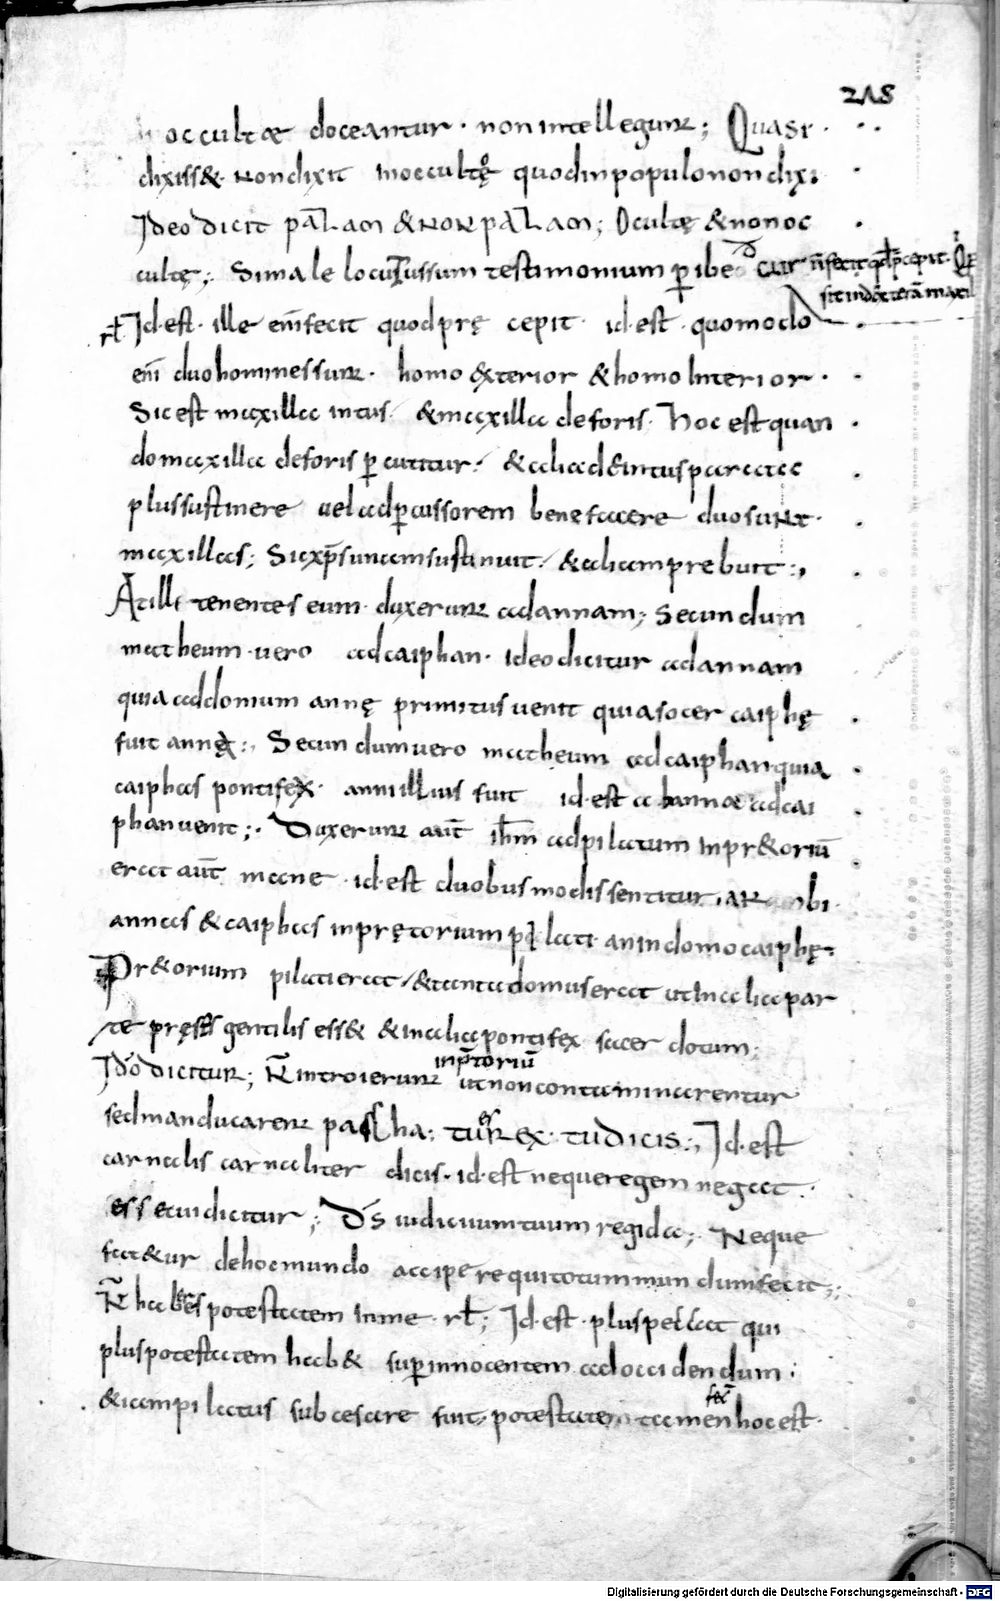 218
occultae doceantur · non intellegunt; Quasi
dixiss& non dixit in occultę quod in populo non dixi
Ideo dicit palam & non palam; Ocultę & non oc
cultę; Si male locutus sum testimonium perhibe cur n̄ fecit qd p̄cepit
Id·est· ille enī fecit quod prę cepit · id·est · quomodo
enī duo homines sunt · homo exterior & homo Interior ·
Sic est maxilla intus & maxilla deforis · hoc est quan
do maxilla deforis percutitur · & alia de intus parata
plus sustinere uel ad percussorem bene facere duo sunt ·
maxillas; Sic xp̄s unam sustinuit · & aliam prebuit :,
At illi tenentes eum · duxerunt ad annam; Secundum
matheum · uero ad caiphan · ideo dicitur ad annam
quia ad domum annę primitus uenit quia socer caiphę
fuit annę :, Secundum uero matheum ad caiphan quia
caiphas pontifex · anni illius fuit id·est ab anna ad cai
phan uenit; · Duxerunt aūt ihm ad pilatum in pr&oriū
erat aūt mane · id·est duobus modis sentitur · aut ubi
annas & caiphas in prętorium pilati · an in domo caiphę ·
Pr&orium pilati erat / & tanta domus erat ut in alia par
te pręses gentilis ess& & in alia pontifex sacerdotum;
Ideo dicitur; Et n̄ introierunt in p̄toriū ut non contaminarentur
sed manducarent pascha; tu es rex · iudicis :, Id·est
carnalis carnaliter dicis · id·est neque regem negat
esse cui dicitur; Ds̄ iudicium tuum regi da; Neque
fatetur de hoc mundo accipere qui totum mundum fecit;
N̄ haberes potestatem in me · rl; Id·est · plus peccat qui
plus potestatem hab& super innocentem ad occidendum;
& iam pilatus sub cesare fuit · potestatem tamen hoc est ·